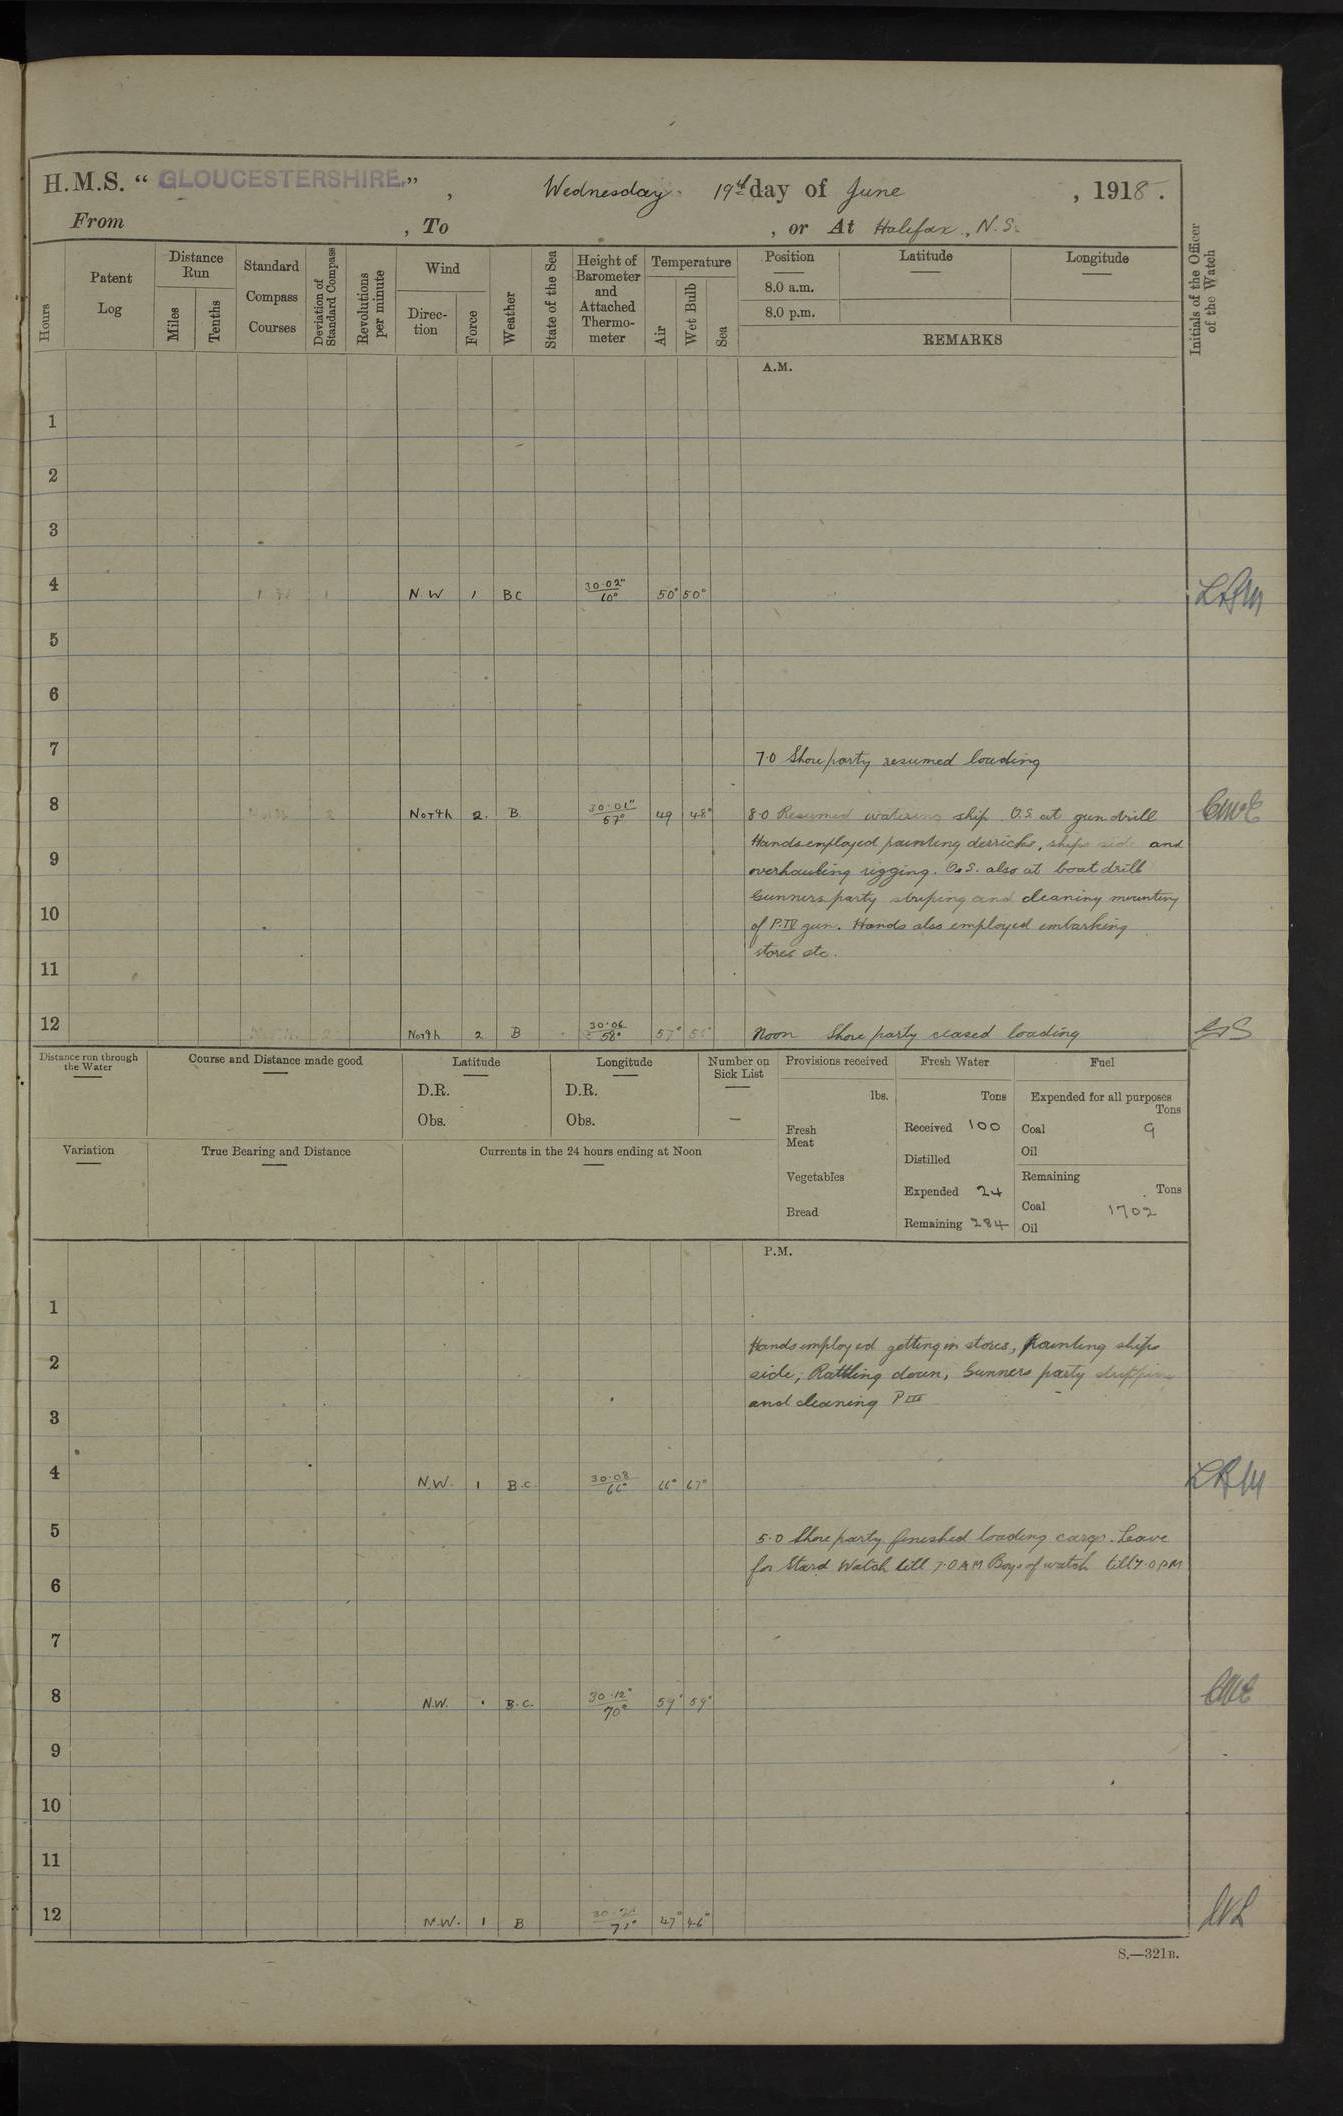 H.M.S. “GLOUCESTERSHIRE.”, Wednesday 19th day of June, 1918.
From , To , or At Halifax, N.S.
Hours
Patent Log
Distance Run
Miles
Tenths
Standard Compass Courses
Deviation of Standard Compass
Revolutions per minute
Wind
Direction
Force
Weather
State of the Sea
Height of Barometer and Attached Thermometer
Temperature
Air
Wet Bulb
Sea
Position Latitude Longitude
8.0 a.m.
8.0 p.m.
REMARKS
Initials of the Officer of the Watch
A.M.
1
2
3
4 N.W 1 BC 30.02" 60° 50° 50°
5
6
7 7.0 Shore party resumed loading
8 North 2. B 30.01" 57° 49 48° 8.0 Resumed watering ship. O.S. at gun drill
Hands employed painting derricks, ships side and
9
overhauling rigging. O.S. also at boat drill
Gunners party striping and cleaning mounting
10
of P.IV gun. Hands also employed embarking
stores etc.
11
12 North 2 B 30.06 58° 57° Noon Shore party ceased loading
Distance run through the Water
Course and Distance made good
Latitude
D.R.
Obs.
Longitude
D.R.
Obs.
Number on Sick List
—
Provisions received
lbs.
Fresh Meat
Vegetables
Bread
Fresh Water
Tons
Received 100
Distilled
Expended 24
Remaining 284
Fuel
Expended for all purposes
Tons
Coal 9
Oil
Remaining
Tons
Coal 1702
Oil
Variation
True Bearing and Distance
Currents in the 24 hours ending at Noon
P.M.
1
Hands employed getting in stores, painting ships
2
side, Rattling down, Gunners party stripping
and cleaning P III
3
4 N.W. 1 B.C 30.08 66° 66° 67°
5 5.0 Shore party finished loading cargo. Leave
for Stard Watch till 7.0 AM Boys of watch till 7.0 PM
6
7
8 N.W. 1 B.C. 30.12" 70° 59° 59°
9
10
11
12 N.W. 1 B 47° 46°
S.—321B.